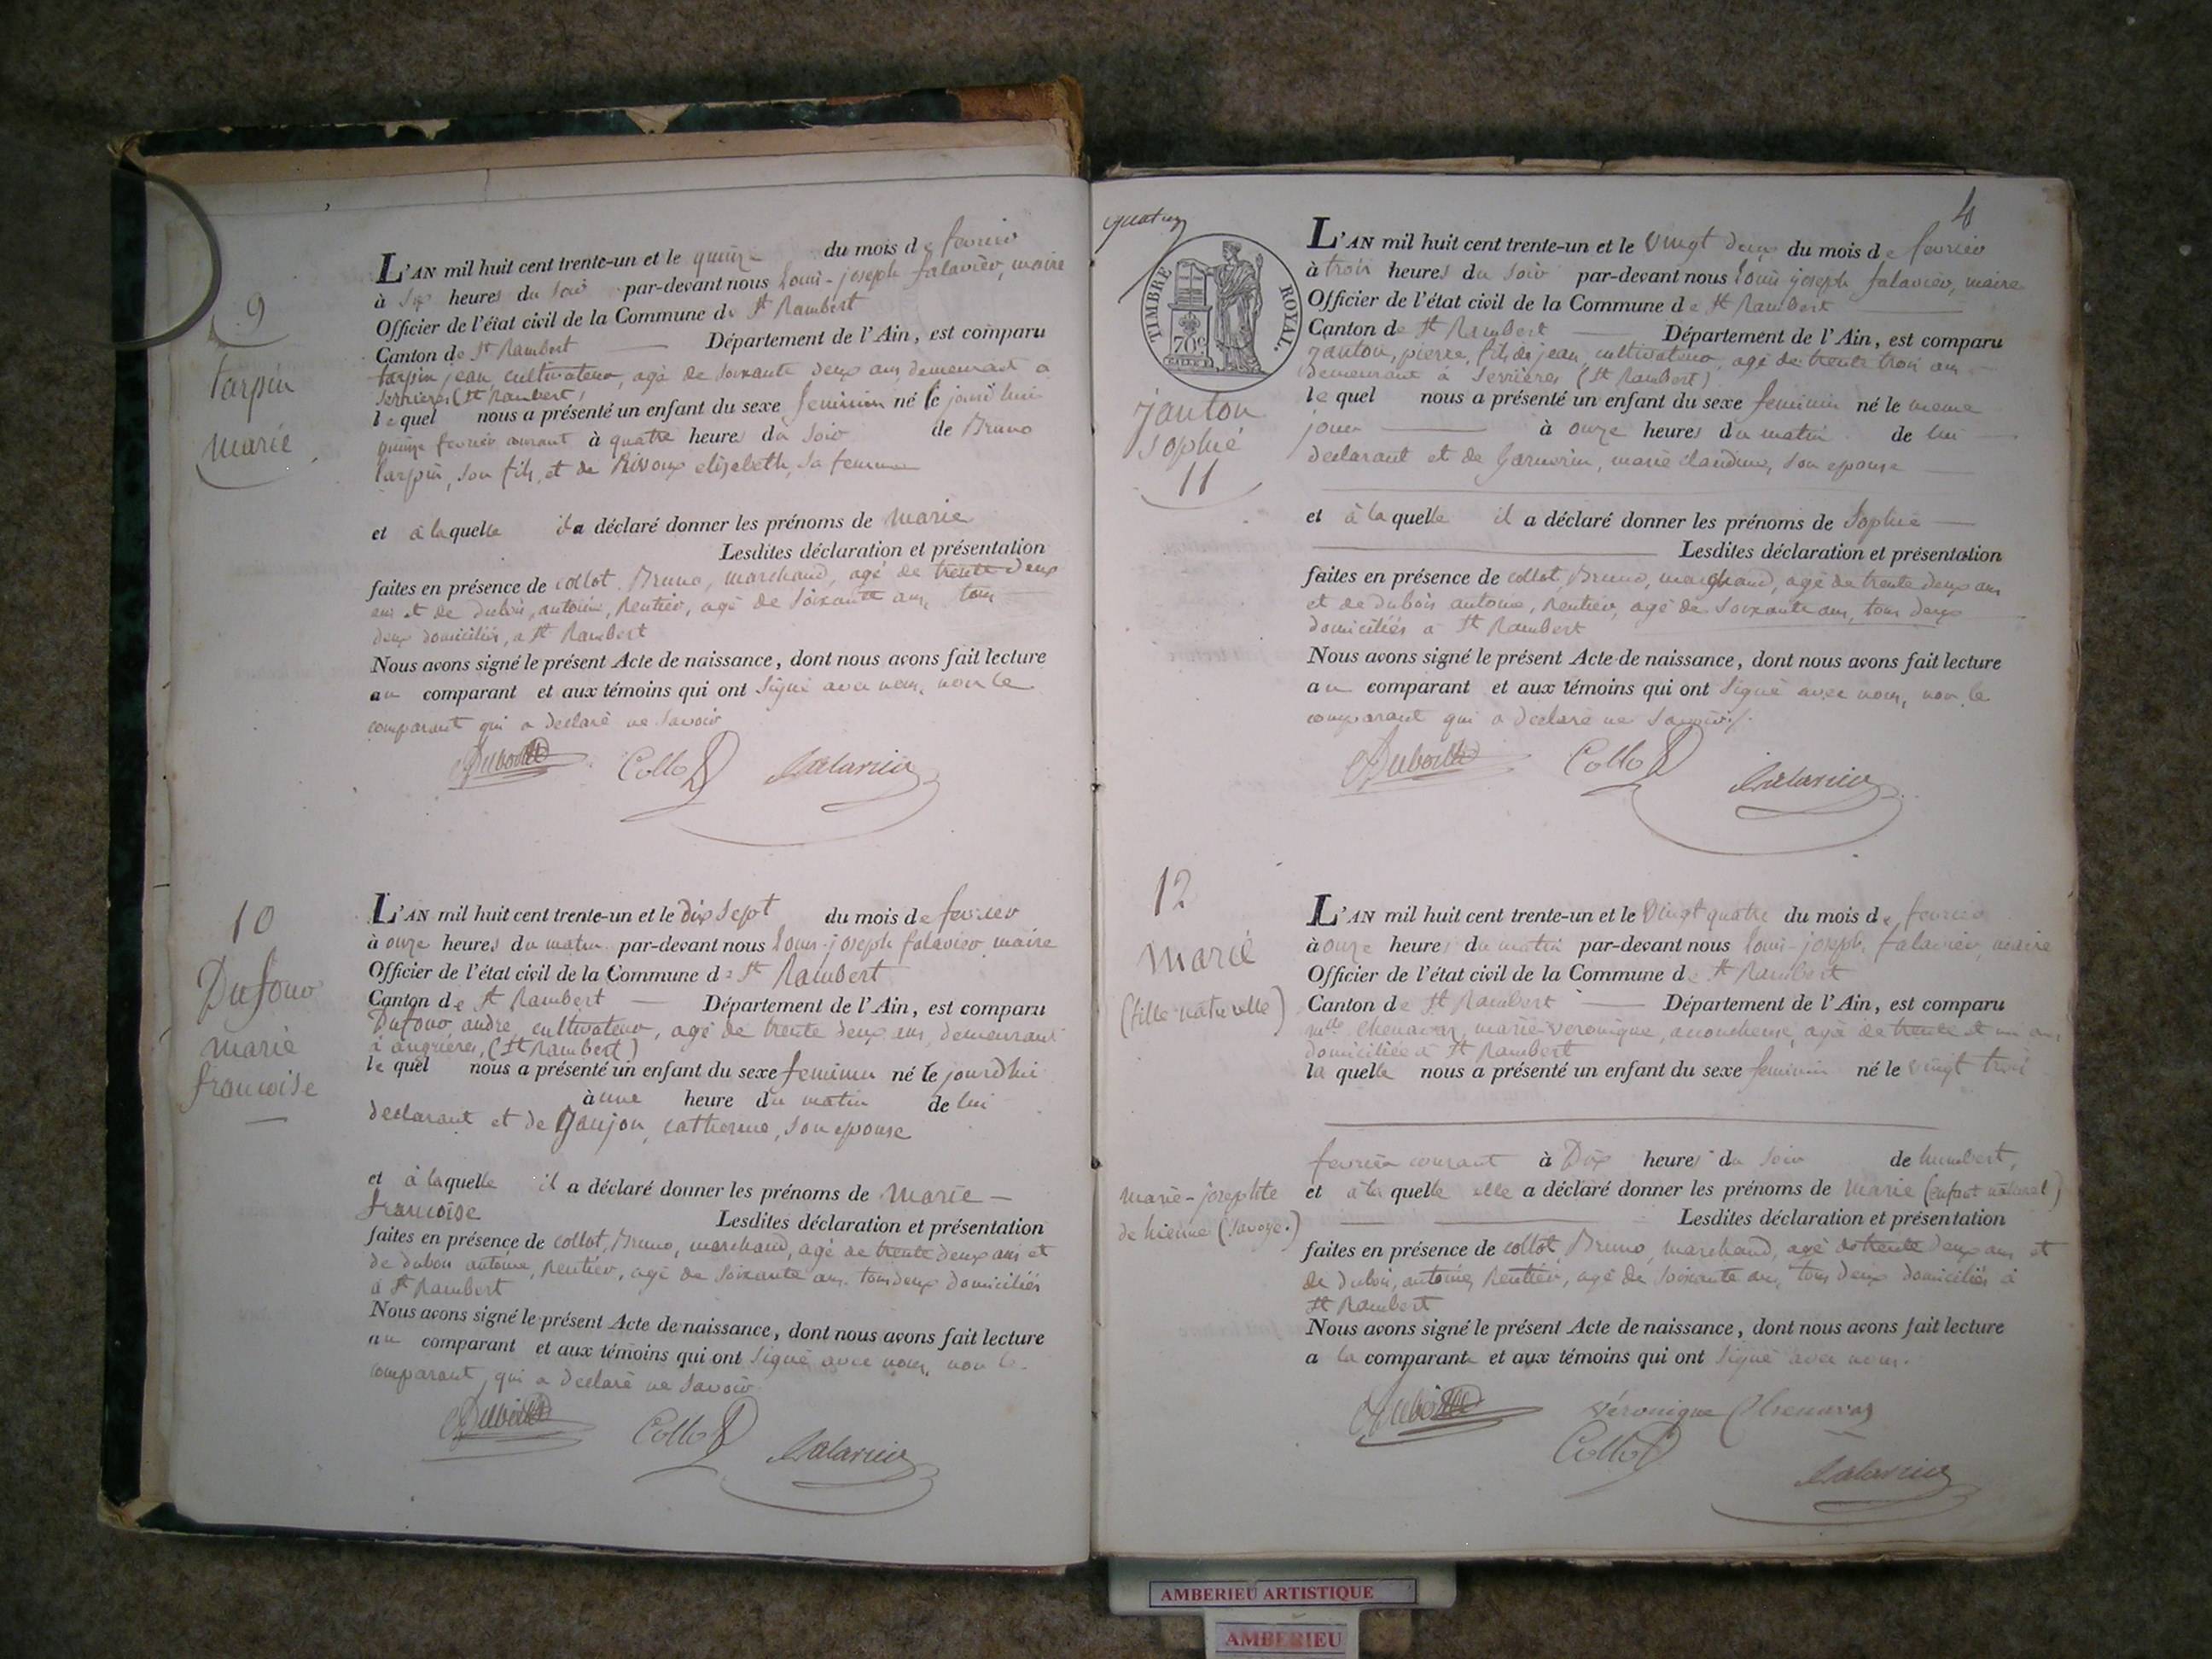 9
tarpin
marie
L'AN mil huit cent trente-un et le quinze du mois de fevrier
à six heures du soir par-devant nous Louis-joseph falavier, maire
Officier de l'état civil de la Commune de St Rambert
Canton de St Rambert Département de l'Ain, est comparu
tarpin jean, cultivateur, agé de soixante deux ans, demeurant a
serrieres (St Rambert)
lequel nous a présenté un enfant du sexe feminin né le jourd'hui
quinze fevrier courant à quatre heures du soir de Bruno
tarpin, son fils, et de Rivoux elisabeth, sa femme
et à laquelle il a déclaré donner les prénoms de Marie
Lesdites déclaration et présentation
faites en présence de collot Bruno, marchand, agé de trente deux
ans et de dubois, antoine, Rentier, agé de soixante ans, tous
deux domiciliés, a St Rambert
Nous avons signé le présent Acte de naissance, dont nous avons fait lecture
au comparant et aux témoins qui ont signé avec nous, non le
comparant qui a declaré ne savoir
Dubois
Collot
falavier
10
Dufour
marie
francoise
L'AN mil huit cent trente-un et le Dix Sept du mois de fevrier
à onze heures du matin par-devant nous Louis-joseph falavier maire
Officier de l'état civil de la Commune de St Rambert
Canton de St Rambert Département de l'Ain, est comparu
Dufour andre, cultivateur, agé de trente deux ans, demeurant
à angrieres, (St Rambert)
lequel nous a présenté un enfant du sexe feminin né le jourd'hui
à une heure du matin de lui
declarant et de Goujon, catherine, son epouse
et à laquelle il a déclaré donner les prénoms de Marie -
francoise Lesdites déclaration et présentation
faites en présence de collot, Bruno, marchand, agé de trente deux ans et
de dubois antoine, Rentier, agé de soixante ans. tous deux domiciliés
à St Rambert
Nous avons signé le présent Acte de naissance, dont nous avons fait lecture
au comparant et aux témoins qui ont signé avec nous, non le
comparant, qui a declaré ne savoir
Dubois
Collot
falavier
4
TIMBRE ROYAL.
70c
janton
sophie
11
L'AN mil huit cent trente-un et le vingt deux du mois de fevrier
à trois heures du soir par-devant nous Louis joseph falavier, maire
Officier de l'état civil de la Commune de St Rambert
Canton de St Rambert Département de l'Ain, est comparu
janton, pierre, fils de jean, cultivateur, agé de trente trois ans
demeurant à Serrières (St Rambert)
lequel nous a présenté un enfant du sexe feminin né le meme
jour à onze heures du matin de lui
declarant et de Garnerin, marie claudine, son epouse
et à laquelle il a déclaré donner les prénoms de Sophie
Lesdites déclaration et présentation
faites en présence de collot, Bruno, marchand, agé de trente deux ans
et de dubois antoine, Rentier, agé de soixante ans, tous deux
domiciliés a St Rambert
Nous avons signé le présent Acte de naissance, dont nous avons fait lecture
au comparant et aux témoins qui ont signé avec nous, non le
comparant qui a declaré ne savoir.
Dubois
Collot
falavier
12
Marie
(fille naturelle)
L'AN mil huit cent trente-un et le Vingt quatre du mois de fevrier
à onze heures du matin par-devant nous Louis-joseph falavier, maire
Officier de l'état civil de la Commune de St Rambert
Canton de St Rambert Département de l'Ain, est comparu
mlle Chenavas, marie-veronique, accoucheuse, agé de trente et un ans
domiciliée à St Rambert
laquelle nous a présenté un enfant du sexe feminin né le vingt trois
fevrier courant à Dix heures du soir de humbert,
marie-josephte
de hienne (Savoye.)
et à laquelle elle a déclaré donner les prénoms de Marie (enfant naturel)
Lesdites déclaration et présentation
faites en présence de collot, Bruno, marchand, agé de trente deux ans et
de dubois, antoine, Rentier, agé de soixante ans, tous deux domiciliés à
St Rambert
Nous avons signé le présent Acte de naissance, dont nous avons fait lecture
a la comparante et aux témoins qui ont signé avec nous.
Dubois
Véronique Chenavas
Collot
falavier
AMBERIEU ARTISTIQUE
AMBERIEU